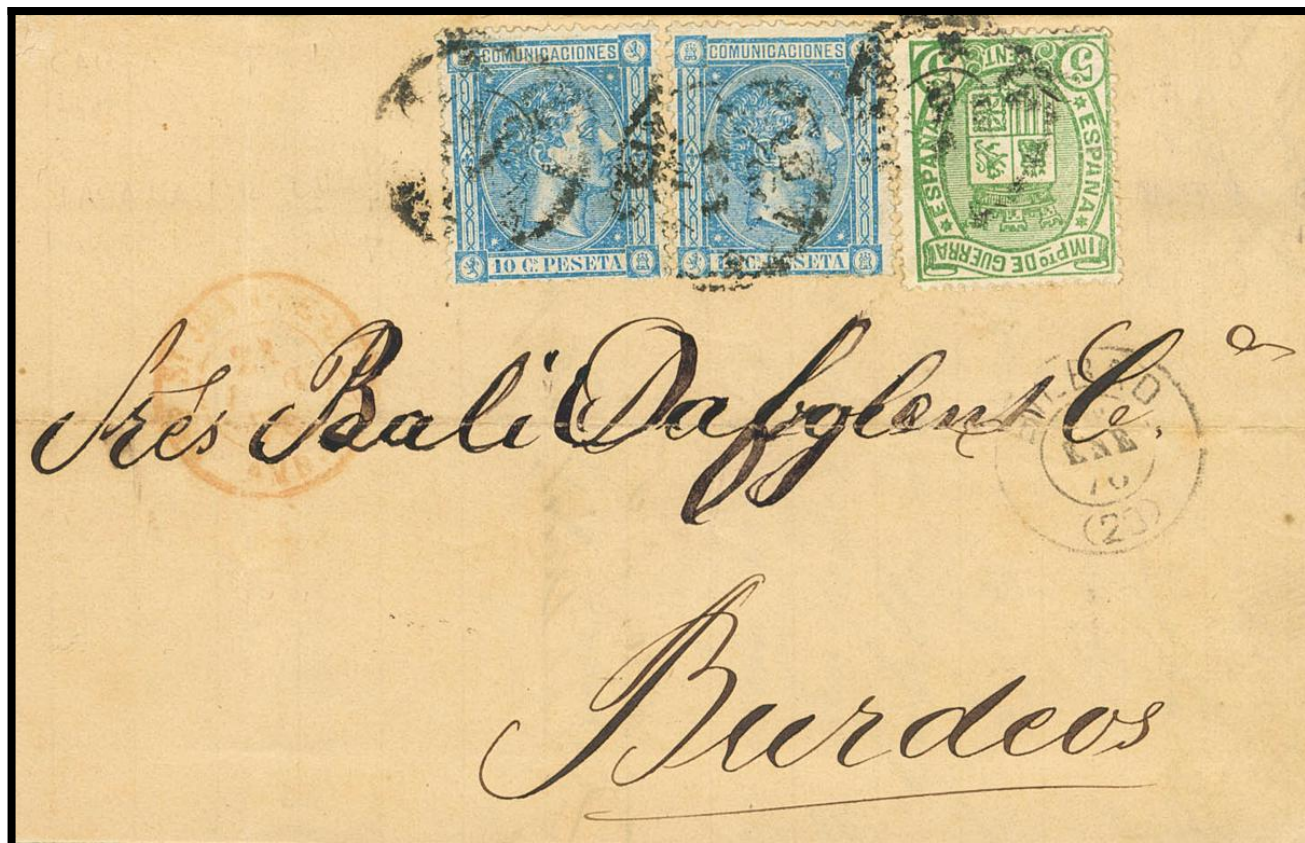 COMUNICACIONES
10 Cs PESETA
COMUNICACIONES
Cs PESETA
5 CENT 5
* ESPAÑA *
* ESPAÑA *
IMPTO DE GUERRA
Sres Bali Dafglens Ca
BILBAO
ENE
76
Burdeos